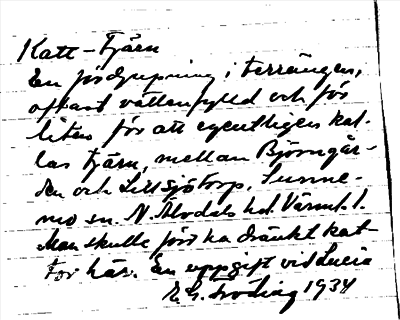 Katt-Tjärn
En fördjupning i terrängen,
oftast vattenfylld och för
liten för att egentligen kal-
las tjärn, mellan Björngår-
den och Lillsjötorp, Sunne-
mo sn. N. Älvdals hd. Värml. l.
Man skulle förr ha dränkt kat-
tor här. En uppgift vid Lucia
E. G. Fröding 1934